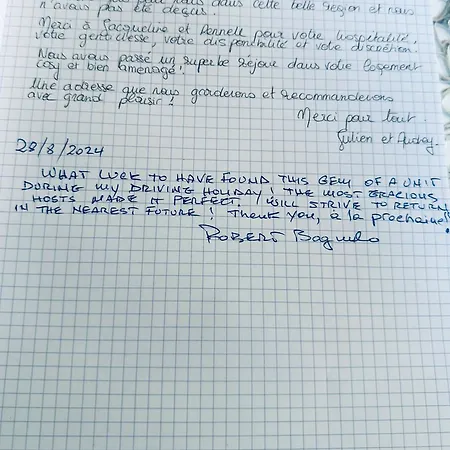 dans cette belle région et nous
n'avons pas été déçus.
Merci à Jacqueline et pour votre hospitalité,
votre gentillesse, votre disponibilité et votre discrétion.
Nous avons passé un superbe séjour dans votre logement
cosy et bien aménagé.
Une adresse que nous garderons et recommanderons
avec grand plaisir !
Merci pour tout.
Julien et Audrey.
28/8/2024
WHAT LUCK TO HAVE FOUND THIS GEM OF A UNIT
DURING MY DRIVING HOLIDAY! THE MOST GRACIOUS
HOSTS MADE IT PERFECT. I WILL STRIVE TO RETURN
IN THE NEAREST FUTURE! Thank you, à la prochaine!
ROBERT